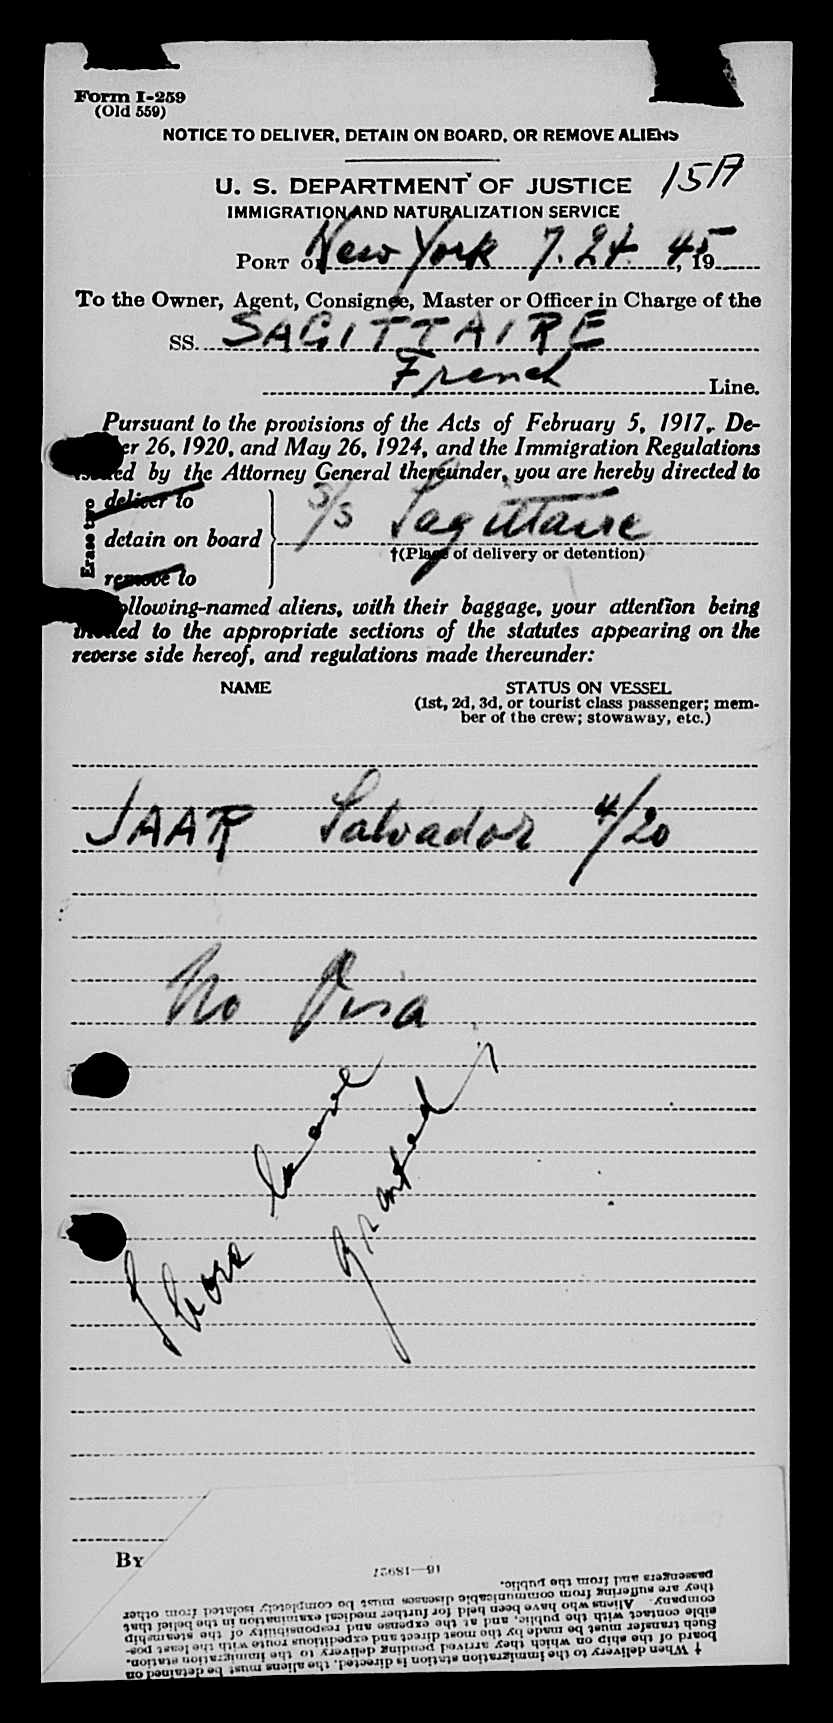 Form I-259
(Old 559)
NOTICE TO DELIVER, DETAIN ON BOARD, OR REMOVE ALIENS
15A
U. S. DEPARTMENT OF JUSTICE
IMMIGRATION AND NATURALIZATION SERVICE
PORT OF New York 7. 24. 45, 19
To the Owner, Agent, Consignee, Master or Officer in Charge of the
SS. SAGITTAIRE
French Line.
Pursuant to the provisions of the Acts of February 5, 1917, De-
er 26, 1920, and May 26, 1924, and the Immigration Regulations
issued by the Attorney General thereunder, you are hereby directed to
Erase two
deliver to
detain on board
remove to
S/S Sagittaire
†(Place of delivery or detention)
ollowing-named aliens, with their baggage, your attention being
invited to the appropriate sections of the statutes appearing on the
reverse side hereof, and regulations made thereunder:
NAME STATUS ON VESSEL
(1st, 2d, 3d, or tourist class passenger; mem-
ber of the crew; stowaway, etc.)
JAAR Salvador 4/20
No Visa
Shore leave
granted
By
16—18927
† When delivery to the immigration station is directed, the aliens must be detained on
board of the ship on which they arrived pending delivery to the immigration station.
Such transfer must be made by the most direct and expeditious route with the least pos-
sible contact with the public, and at the expense and responsibility of the steamship
company. Aliens who have been held for further medical examination in the belief that
they are suffering from communicable diseases must be completely isolated from other
passengers and from the public.